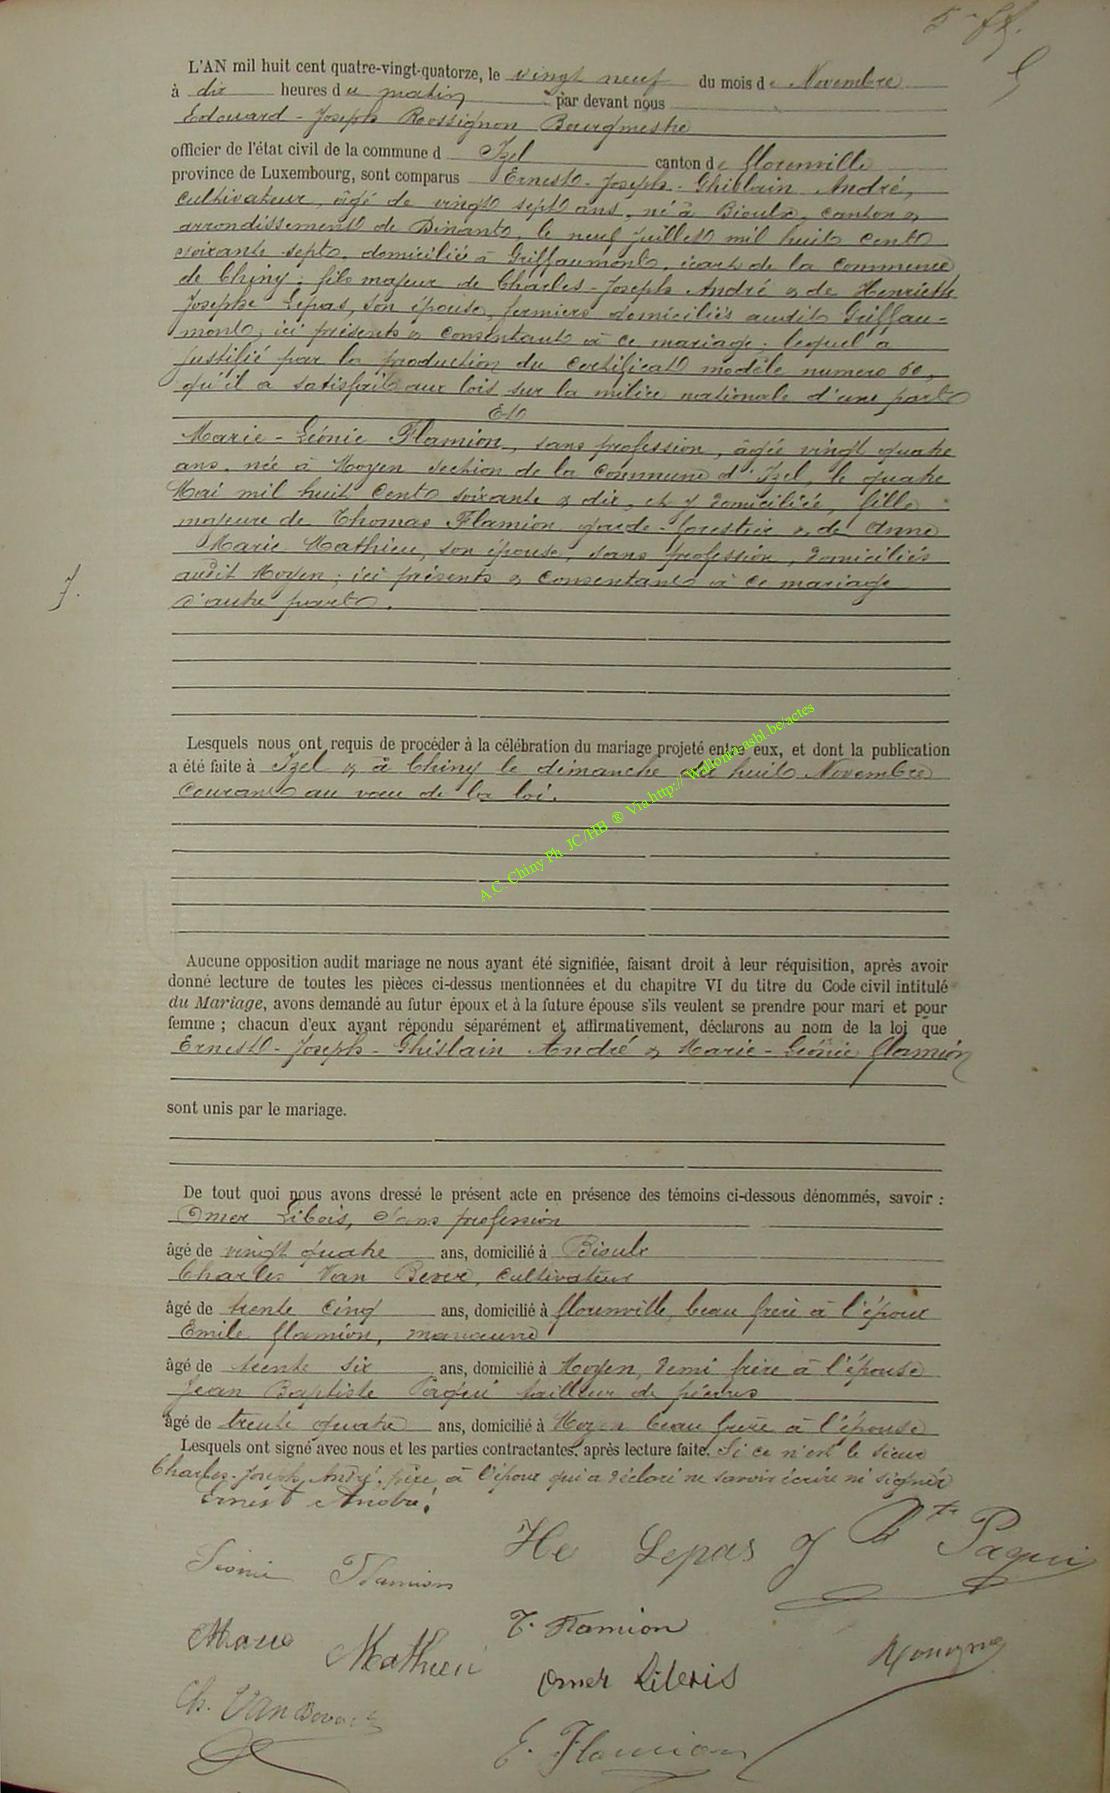 5
L'AN mil huit cent quatre-vingt-quatorze, le vingt neuf du mois de Novembre
à dix heures du matin par devant nous
Edouard-Joseph Rossignon Bourgmestre
officier de l'état civil de la commune d Izel canton de florenville
province de Luxembourg, sont comparus Ernest-Joseph-Ghislain André,
cultivateur, âgé de vingt sept ans, né à Bioulx, canton &
arrondissement de Dinant, le neuf juillet mil huit cent
soixante sept, domicilié à Griffaumont, écart de la commune
de Chiny; fils majeur de Charles-Joseph André & de Henriette
Josephe Lepas, son épouse, fermiers domiciliés audit Griffau-
mont, ici présents & consentant à ce mariage; lequel a
justifié par la production du certificat modèle numero 60,
qu'il a satisfait aux lois sur la milice nationale d'une part
Et
Marie-Léonie Flamion, sans profession, âgée vingt quatre
ans, née à Moyen section de la commune d'Izel, le quatre
Mai mil huit cent soixante & dix, et y domiciliée, fille
majeure de Thomas Flamion garde-forestier & de Anne
Marie Mathieu, son épouse, sans profession, domiciliés
audit Moyen; ici présents & consentant à ce mariage
d'autre part.
Lesquels nous ont requis de procéder à la célébration du mariage projeté entre eux, et dont la publication
a été faite à Izel & à Chiny le dimanche dix huit Novembre
courant au vœu de la loi.
A.C. Chiny Ph. JC/HB ® Via http:// Wallonia-asbl.be/actes
Aucune opposition audit mariage ne nous ayant été signifiée, faisant droit à leur réquisition, après avoir
donné lecture de toutes les pièces ci-dessus mentionnées et du chapitre VI du titre du Code civil intitulé
du Mariage, avons demandé au futur époux et à la future épouse s'ils veulent se prendre pour mari et pour
femme ; chacun d'eux ayant répondu séparément et affirmativement, déclarons au nom de la loi que
Ernest-Joseph-Ghislain André & Marie-Léonie flamion
sont unis par le mariage.
De tout quoi nous avons dressé le présent acte en présence des témoins ci-dessous dénommés, savoir :
Omer Libois, Sans profession
âgé de vingt quatre ans, domicilié à Bioulx
Charles Van Bever, cultivateur
âgé de trente cinq ans, domicilié à florenville, beau frère à l'époux
Emile flamion, manœuvre
âgé de trente six ans, domicilié à Moyen, demi frère à l'épouse
Jean Baptiste Paquï tailleur de pierres
âgé de trente quatre ans, domicilié à Moyen beau frère à l'épouse
Lesquels ont signé avec nous et les parties contractantes, après lecture faite. Si ce n'est le sieur
Charles-Joseph André, père à l'époux qui a déclaré ne savoir écrire ni signer
Ernest André.
He Lepas
Bte Paqui
Léonie Flamion
T. Flamion
Marie Mathieu
Omer Libois
Ch. Van Bever
E. Flamion